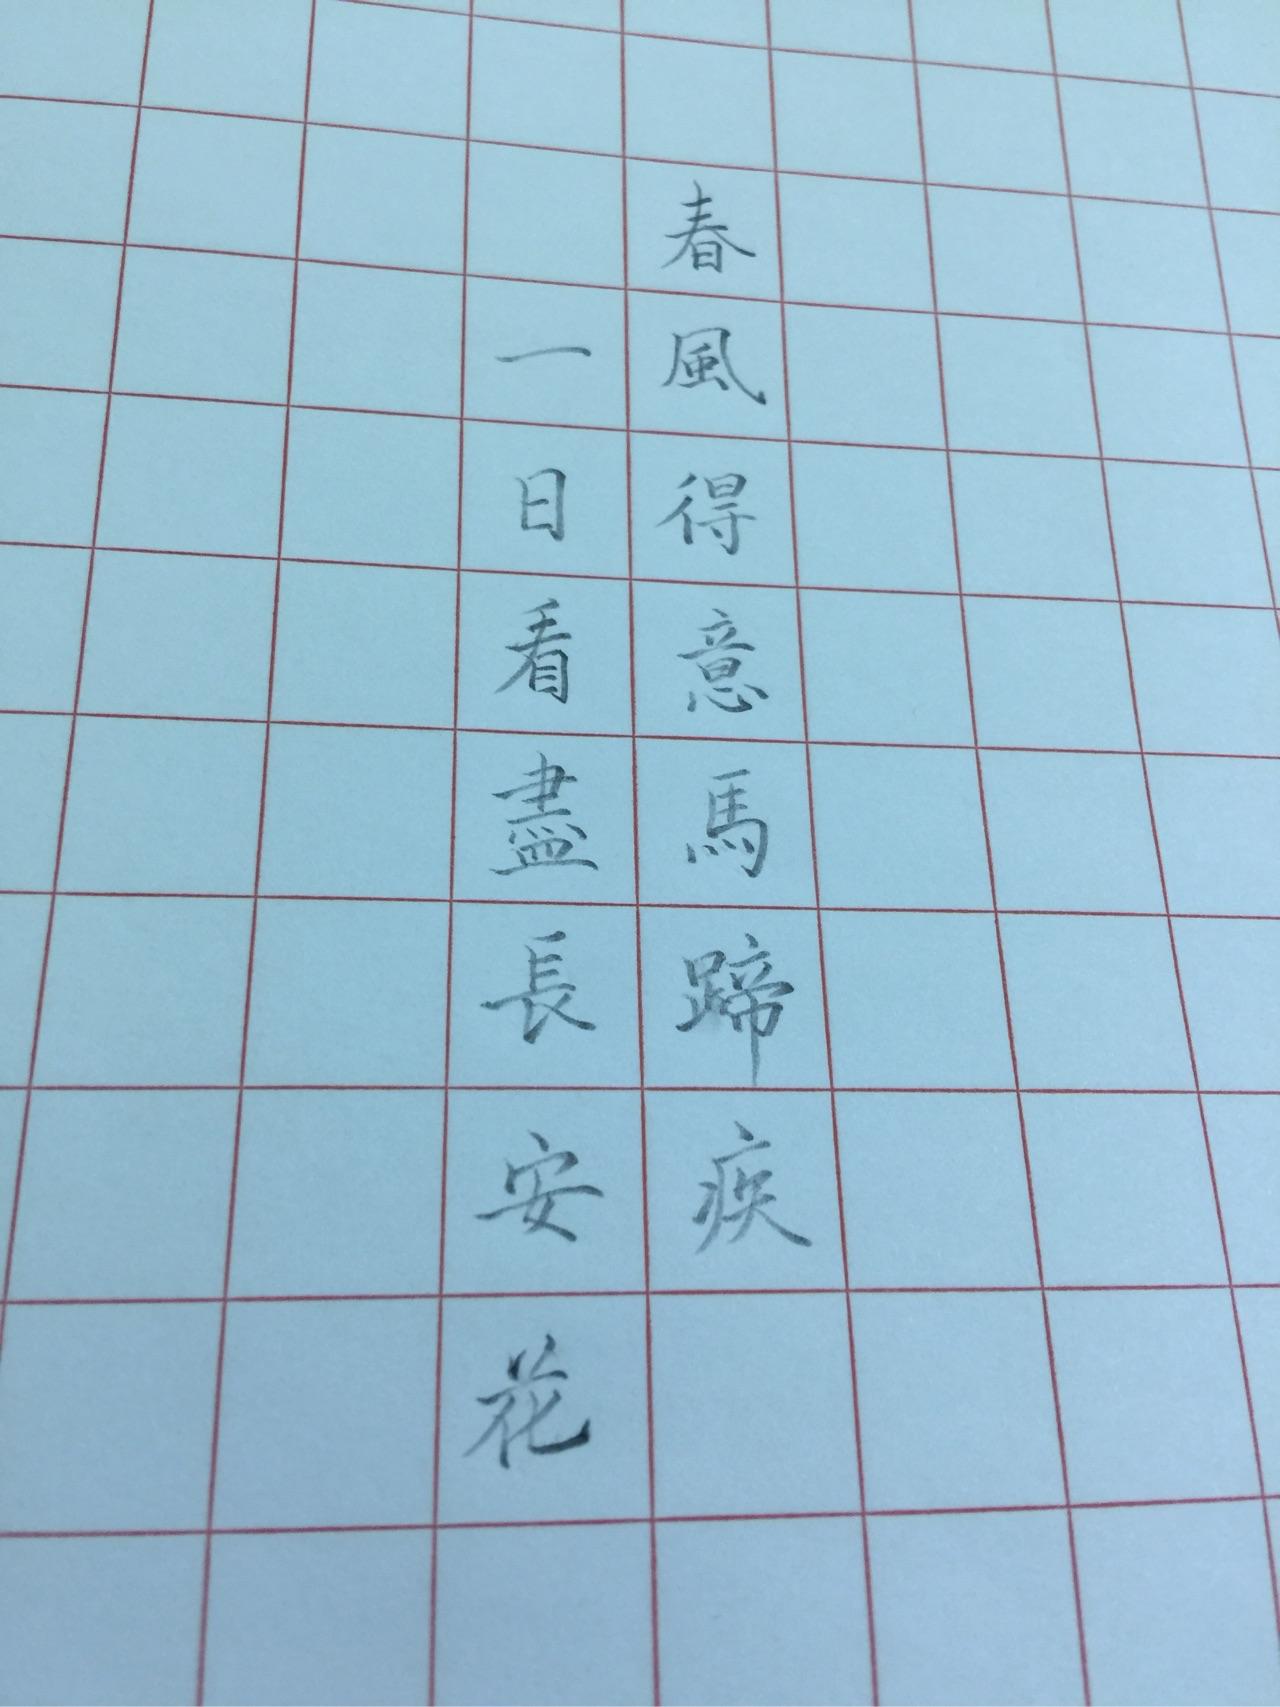 春風得意馬蹄疾
一日看盡長安花